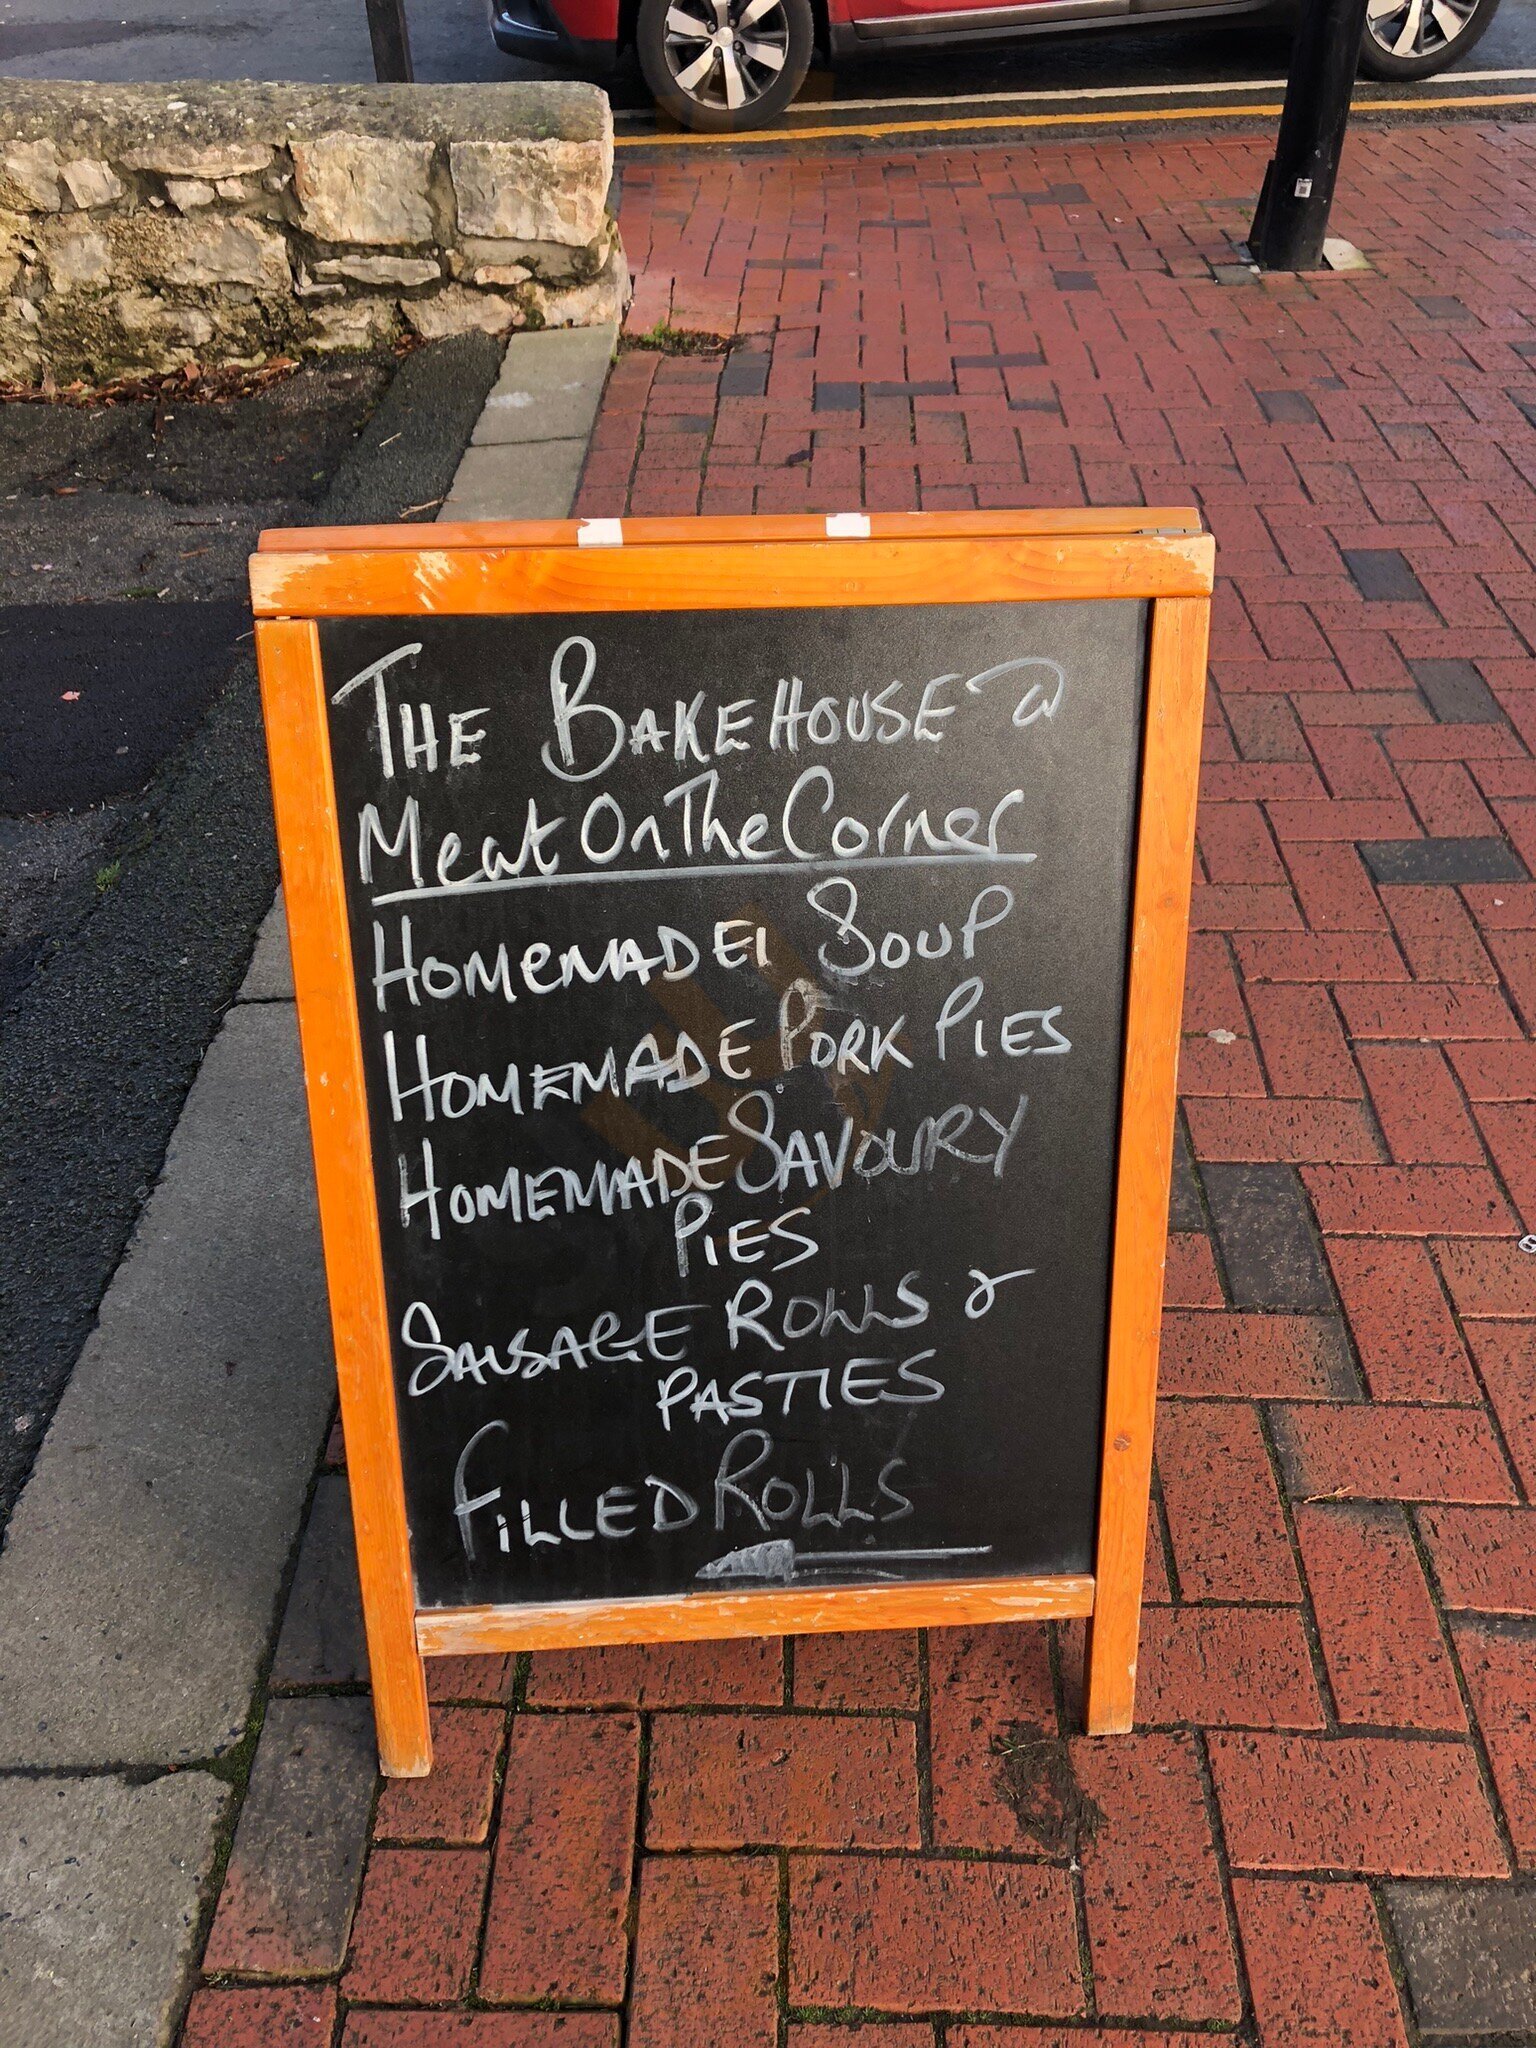 THE BAKEHOUSE @
Meat On The Corner
HOMEMADE SOUP
HOMEMADE PORK PIES
HOMEMADE SAVOURY
PIES
SAUSAGE ROLLS &
PASTIES
FILLED ROLLS